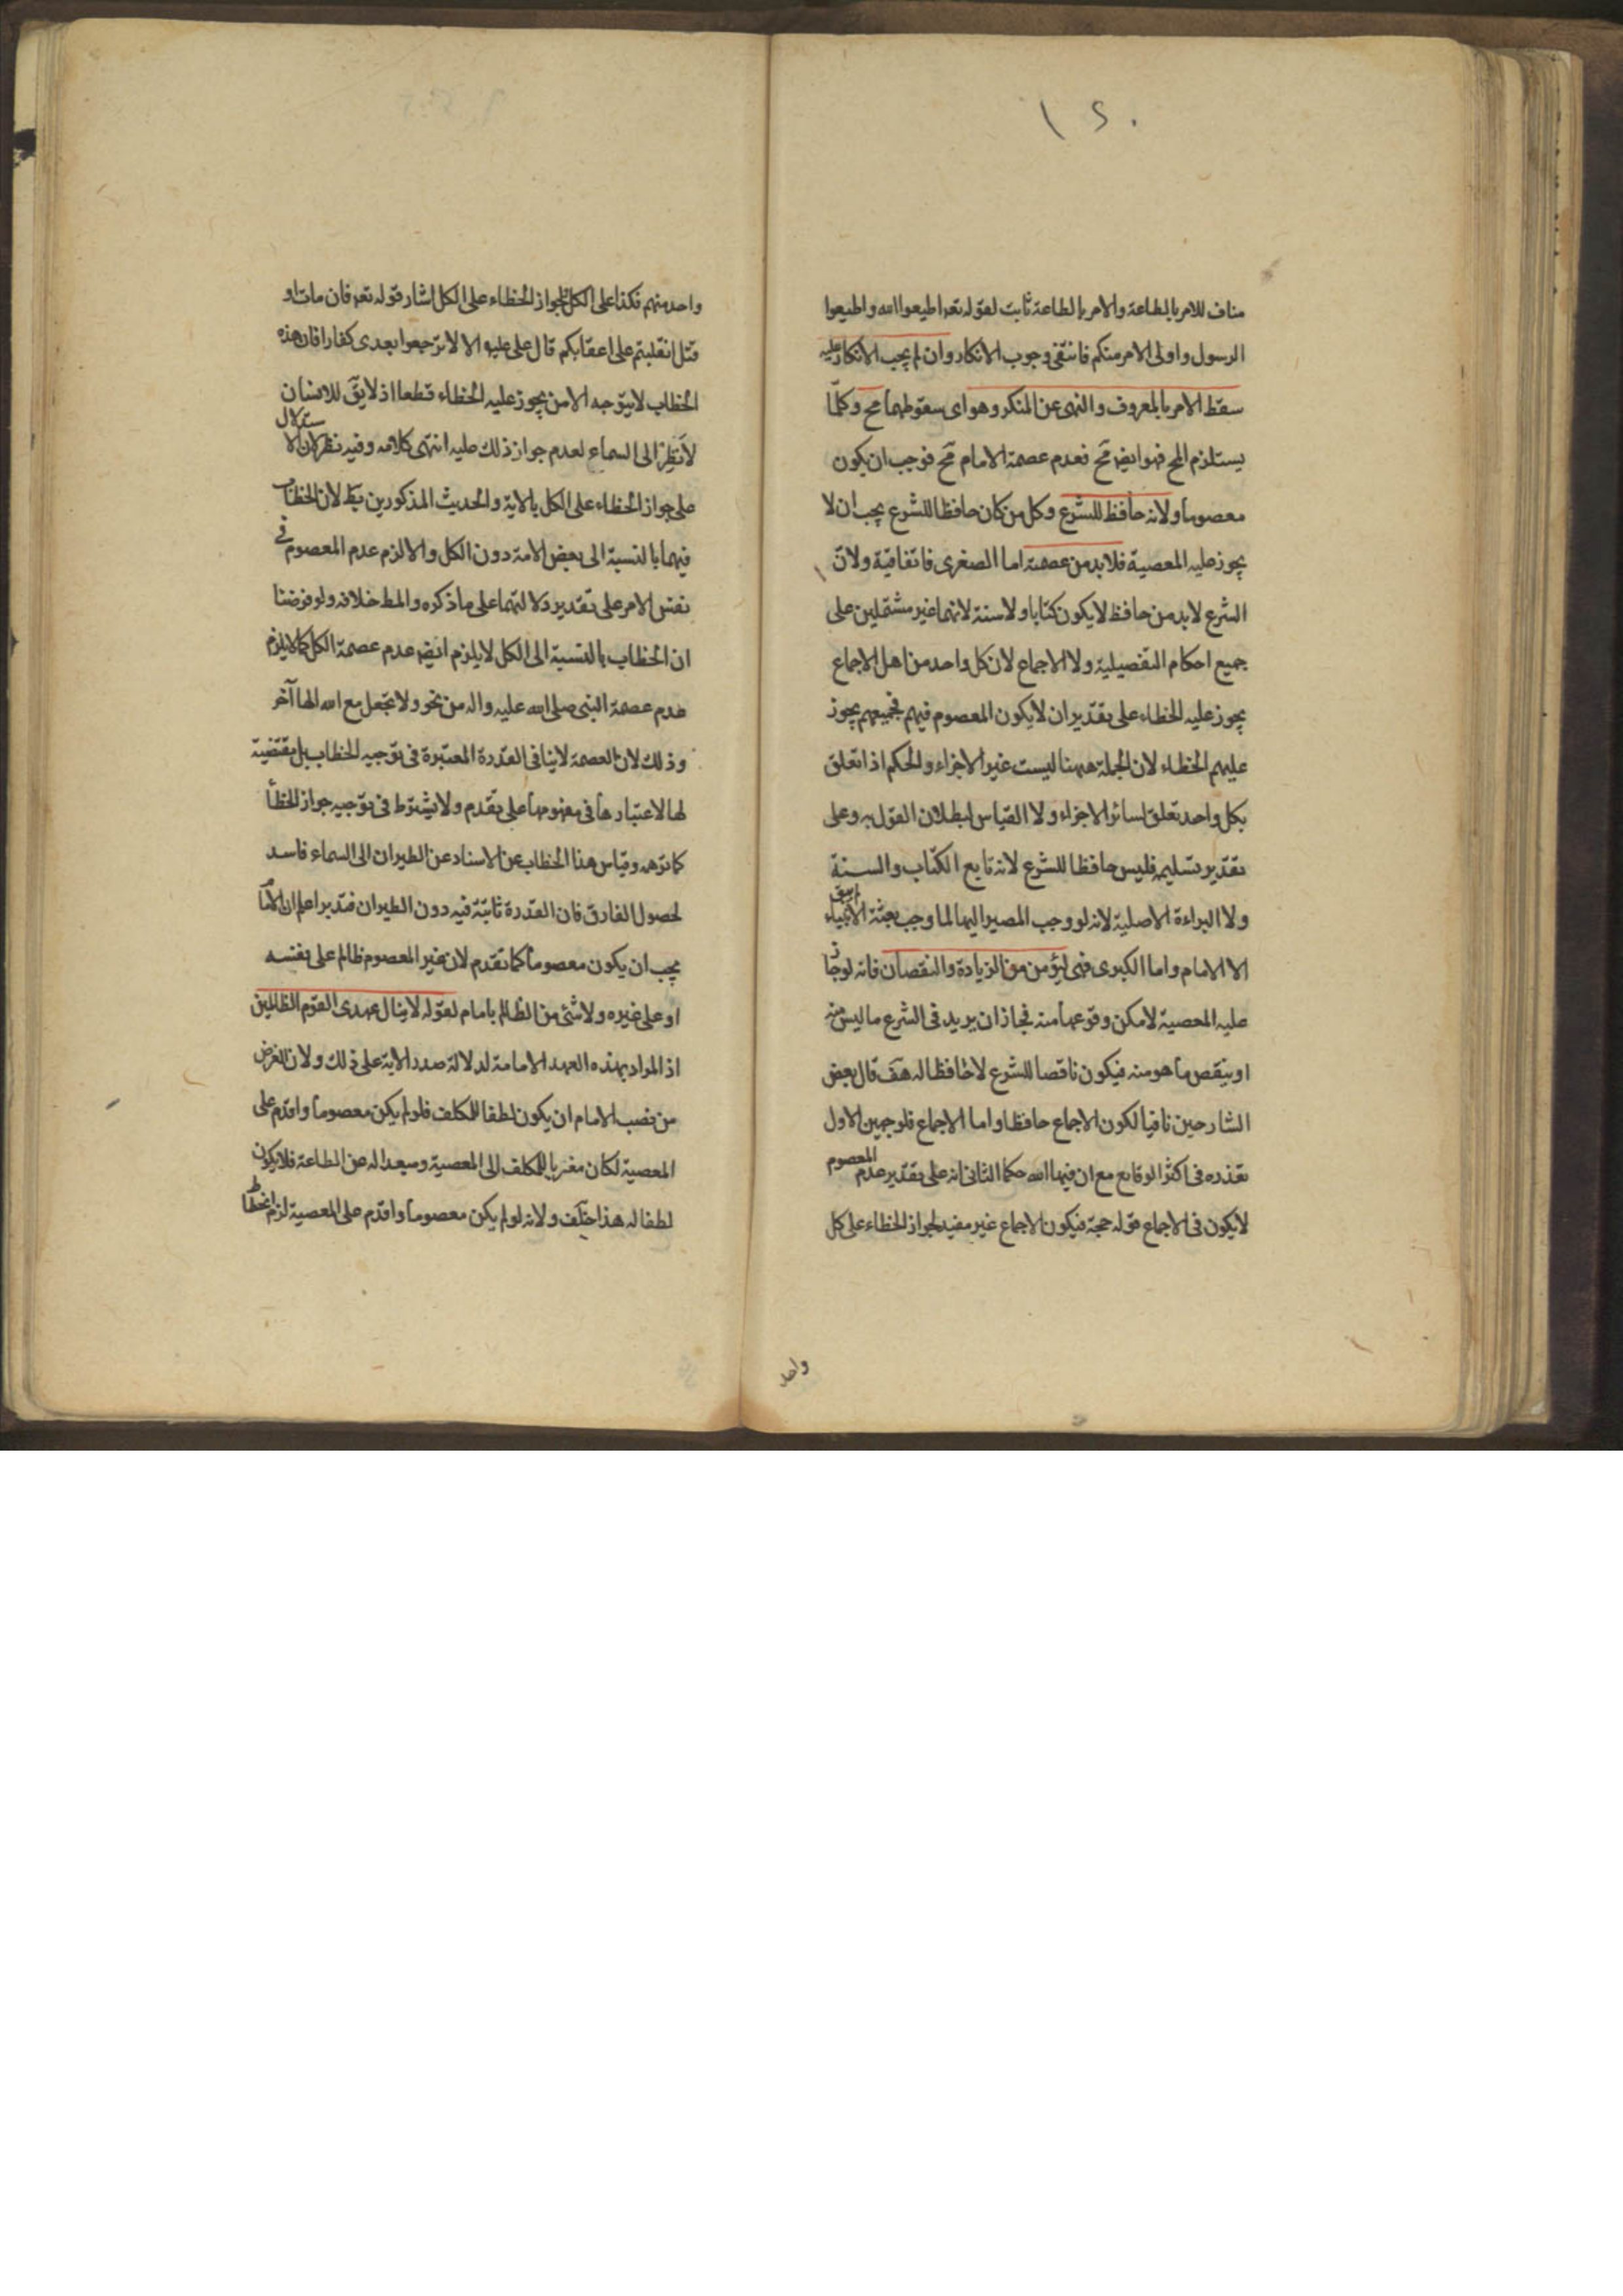 ١٢٠
مناف للامر بالطاعة والامر بالطاعة ثابت لقوله تعه اطيعوا الله واطيعوا
الرسول واولى الامر منكم فانتفى وجوب الانكار وان لم يجب الانكار عليه
سقط الامر بالمعروف والنهى عن المنكر وهو اى سقوطهما مح وكلّما
يستلزم المح فهو ايضه مح فعدم عصمة الامام مح فوجب ان يكون
معصوما ولانه حافظ للشرع وكل من كان حافظا للشرع يجب ان لا
يجوز عليه المعصية فلابد من عصمته اما الصغرى فاتفاقية ولانّ
الشرع لابد من حافظ لا يكون كتابا ولا سنة لانهما غير مشتملين على
جميع احكام التفصيلية ولا الاجماع لان كل واحد من اهل الاجماع
يجوز عليه الخطاء على تقدير ان لا يكون المعصوم فيهم فجميعهم يجوز
عليهم الخطاء لان الجملة ههنا ليست غير الاجزاء والحكم اذا تعلق
بكل واحد تعلق لسائر الاجزاء ولا القياس لبطلان القول به وعلى
تقدير تسليمه فليس حافظا للشرع لانه تابع الكتاب والسنة
ولا البراءة الاصلية لانه لو وجب المصير اليها لما وجب بعثة الانبياء
الا الامام واما الكبرى فهى ليؤمن من الزيادة والنقصان فانه لو جاز
عليه المعصية لامكن وقوعها منه فجاز ان يريد فى الشرع ما ليس منه
او ينقص ما هو منه فيكون ناقصا للشرع لا حافظا له هف قال بعض
الشارحين نافيا لكون الاجماع حافظا واما الاجماع فلوجهين الاول
تعذره فى اكثر الوقايع مع ان فيها الله حكما الثانى انه على تقدير عدم المعصوم
لا يكون فى الاجماع قوله حجة فيكون الاجماع غير مفيد لجواز الخطاء على كل
واحد
واحد منهم فكذا على الكل لجواز الخطاء على الكل اشار قوله تعه فان مات او
قتل انقلبتم على اعقابكم قال على عليه الا لا ترجعوا بعدى كفارا فان هذه
الخطاب لا يتوجه الا من يجوز عليه الخطاء قطعا اذ لا يقَ للانسان
لا تطِر الى السماء لعدم جواز ذلك عليه انتهى كلامه وفيه نظر لان الاستدلال
على جواز الخطاء على الكل بالاية والحديث المذكورين بط لان الخطاب
فيهما بالنسبة الى بعض الامة دون الكل والا لزم عدم المعصوم فى
نفس الامر على تقدير دلالتهما على ما ذكره والمط خلافه ولو فرضنا
ان الخطاب بالنسبة الى الكل لا يلزم ايضه عدم عصمة الكل كما لا يلزم
عدم عصمة النبى صلى الله عليه واله من نحو ولا تجعل مع الله الها آخر
وذلك لان العصمة لا ينافى القدرة المعتبرة فى توجيه الخطاب بل مقتضية
لها لاعتبارها فى مفهومها على تقدم ولا يشترط فى توجيه جواز الخطأ
كما توهمه وقياس هذا الخطاب عن الاسناد عن الطيران الى السماء فاسد
لحصول الفارق فان القدرة ثابتة فيه دون الطيران فتدبر اعلم ان الامام
يجب ان يكون معصوما كما تقدم لان غير المعصوم ظالم على نفسه
او على غيره ولا شئ من الظالم بامام لقوله لا ينال عهدى القوم الظالمين
اذ المراد بهذه العهد الامامة لدلالة صدر الاية على ذلك ولان الغرض
من نصب الامام ان يكون لطفا للمكلف فلو لم يكن معصوما واقدم على
المعصية لكان مغريا للمكلف الى المعصية ومبعدا له عن الطاعة فلا يكون
لطفا له هذا خلف ولانه لو لم يكن معصوما واقدم على المعصية لزم انحطاط